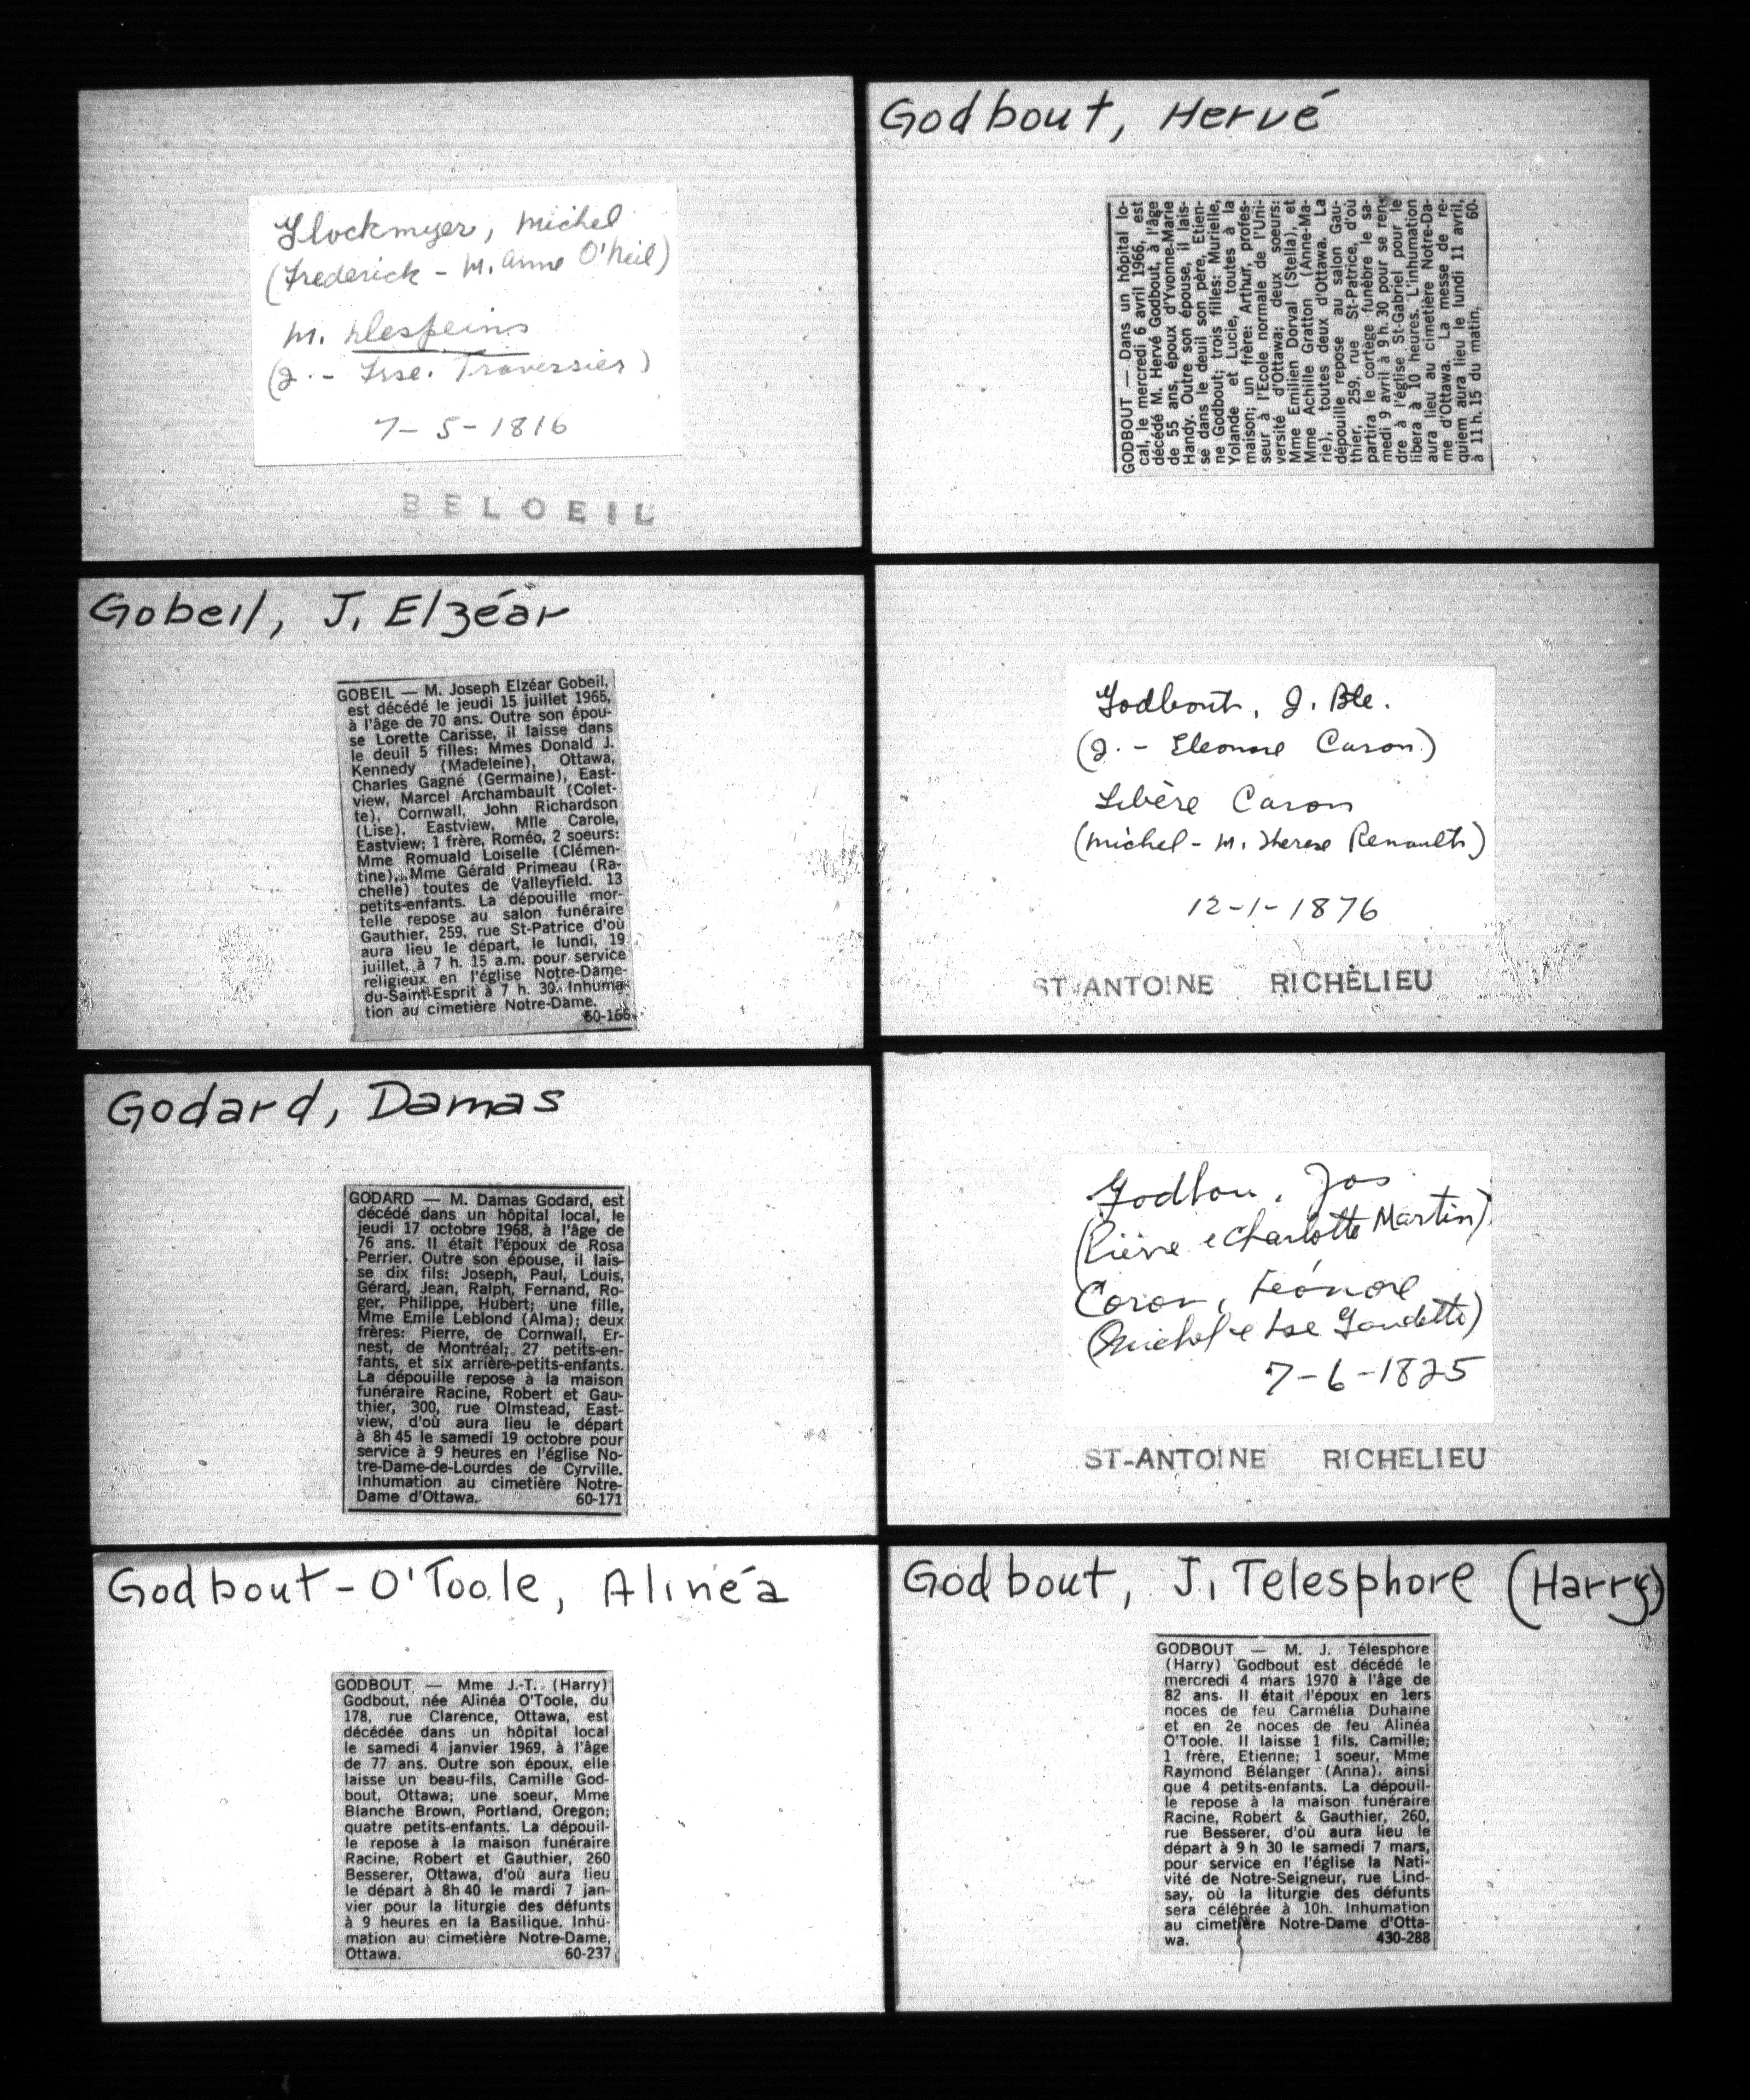 Glockmyer, Michel
(Frederick - M. Anne O'Neil)
M. Despeins
(J. - Frse. Traversier)
7-5-1816
BELOEIL
Gobeil, J. Elzéar
GOBEIL — M. Joseph Elzéar Gobeil,
est décédé le jeudi 15 juillet 1965,
à l'âge de 70 ans. Outre son épou-
se Lorette Carisse, il laisse dans
le deuil 5 filles: Mmes Donald J.
Kennedy (Madeleine), Ottawa,
Charles Gagné (Germaine), East-
view, Marcel Archambault (Colet-
te), Cornwall, John Richardson
(Lise), Eastview, Mlle Carole,
Eastview; 1 frère, Roméo, 2 soeurs:
Mme Romuald Loiselle (Clémen-
tine), Mme Gérald Primeau (Ra-
chelle) toutes de Valleyfield. 13
petits-enfants. La dépouille mor-
telle repose au salon funéraire
Gauthier, 259, rue St-Patrice d'où
aura lieu le départ, le lundi, 19
juillet, à 7 h. 15 a.m. pour service
religieux en l'église Notre-Dame-
du-Saint-Esprit à 7 h. 30. Inhuma-
tion au cimetière Notre-Dame.
60-166
Godard, Damas
GODARD — M. Damas Godard, est
décédé dans un hôpital local, le
jeudi 17 octobre 1968, à l'âge de
76 ans. Il était l'époux de Rosa
Perrier. Outre son épouse, il lais-
se dix fils: Joseph, Paul, Louis,
Gérard, Jean, Ralph, Fernand, Ro-
ger, Philippe, Hubert; une fille,
Mme Emile Leblond (Alma); deux
frères: Pierre, de Cornwall, Er-
nest, de Montréal; 27 petits-en-
fants, et six arrière-petits-enfants.
La dépouille repose à la maison
funéraire Racine, Robert et Gau-
thier, 300, rue Olmstead, East-
view, d'où aura lieu le départ
à 8h 45 le samedi 19 octobre pour
service à 9 heures en l'église No-
tre-Dame-de-Lourdes de Cyrville.
Inhumation au cimetière Notre-
Dame d'Ottawa. 60-171
Godbout-O'Toole, Alinéa
GODBOUT — Mme J.-T. (Harry)
Godbout, née Alinéa O'Toole, du
178, rue Clarence, Ottawa, est
décédée dans un hôpital local
le samedi 4 janvier 1969, à l'âge
de 77 ans. Outre son époux, elle
laisse un beau-fils, Camille God-
bout, Ottawa; une soeur, Mme
Blanche Brown, Portland, Oregon;
quatre petits-enfants. La dépouil-
le repose à la maison funéraire
Racine, Robert et Gauthier, 260
Besserer, Ottawa, d'où aura lieu
le départ à 8h 40 le mardi 7 jan-
vier pour la liturgie des défunts
à 9 heures en la Basilique. Inhu-
mation au cimetière Notre-Dame,
Ottawa. 60-237
Godbout, Hervé
GODBOUT — Dans un hôpital lo-
cal, le mercredi 6 avril 1966, est
décédé M. Hervé Godbout, à l'âge
de 55 ans, époux d'Yvonne-Marie
Handy. Outre son épouse, il lais-
se dans le deuil son père, Etien-
ne Godbout; trois filles: Murielle,
Yolande et Lucie, toutes à la
maison; un frère: Arthur, profes-
seur à l'Ecole normale de l'Uni-
versité d'Ottawa; deux soeurs:
Mme Emilien Dorval (Stella), et
Mme Achille Gratton (Anne-Ma-
rie), toutes deux d'Ottawa. La
dépouille repose au salon Gau-
thier, 259, rue St-Patrice, d'où
partira le cortège funèbre le sa-
medi 9 avril à 9 h. 30 pour se ren-
dre à l'église St-Gabriel pour le
libera à 10 heures. L'inhumation
aura lieu au cimetière Notre-Da-
me d'Ottawa. La messe de re-
quiem aura lieu le lundi 11 avril,
à 11 h. 15 du matin. 60-
Godbout, J. Bte.
(J. - Eleonore Caron)
Libère Caron
(Michel - M. Therese Renault)
12-1-1876
ST-ANTOINE RICHELIEU
Godbou, Jos
(Pierre & Charlotte Martin)
Coron, Léonore
(Michel & Lse Gaudette)
7-6-1825
ST-ANTOINE RICHELIEU
Godbout, J. Telesphore (Harry)
GODBOUT — M. J. Télesphore
(Harry) Godbout est décédé le
mercredi 4 mars 1970 à l'âge de
82 ans. Il était l'époux en 1ers
noces de feu Carmélia Duhaine
et en 2e noces de feu Alinéa
O'Toole. Il laisse 1 fils, Camille;
1 frère, Etienne; 1 soeur, Mme
Raymond Bélanger (Anna), ainsi
que 4 petits-enfants. La dépouil-
le repose à la maison funéraire
Racine, Robert & Gauthier, 260,
rue Besserer, d'où aura lieu le
départ à 9 h 30 le samedi 7 mars,
pour service en l'église la Nati-
vité de Notre-Seigneur, rue Lind-
say, où la liturgie des défunts
sera célébrée à 10h. Inhumation
au cimetière Notre-Dame d'Otta-
wa. 430-288